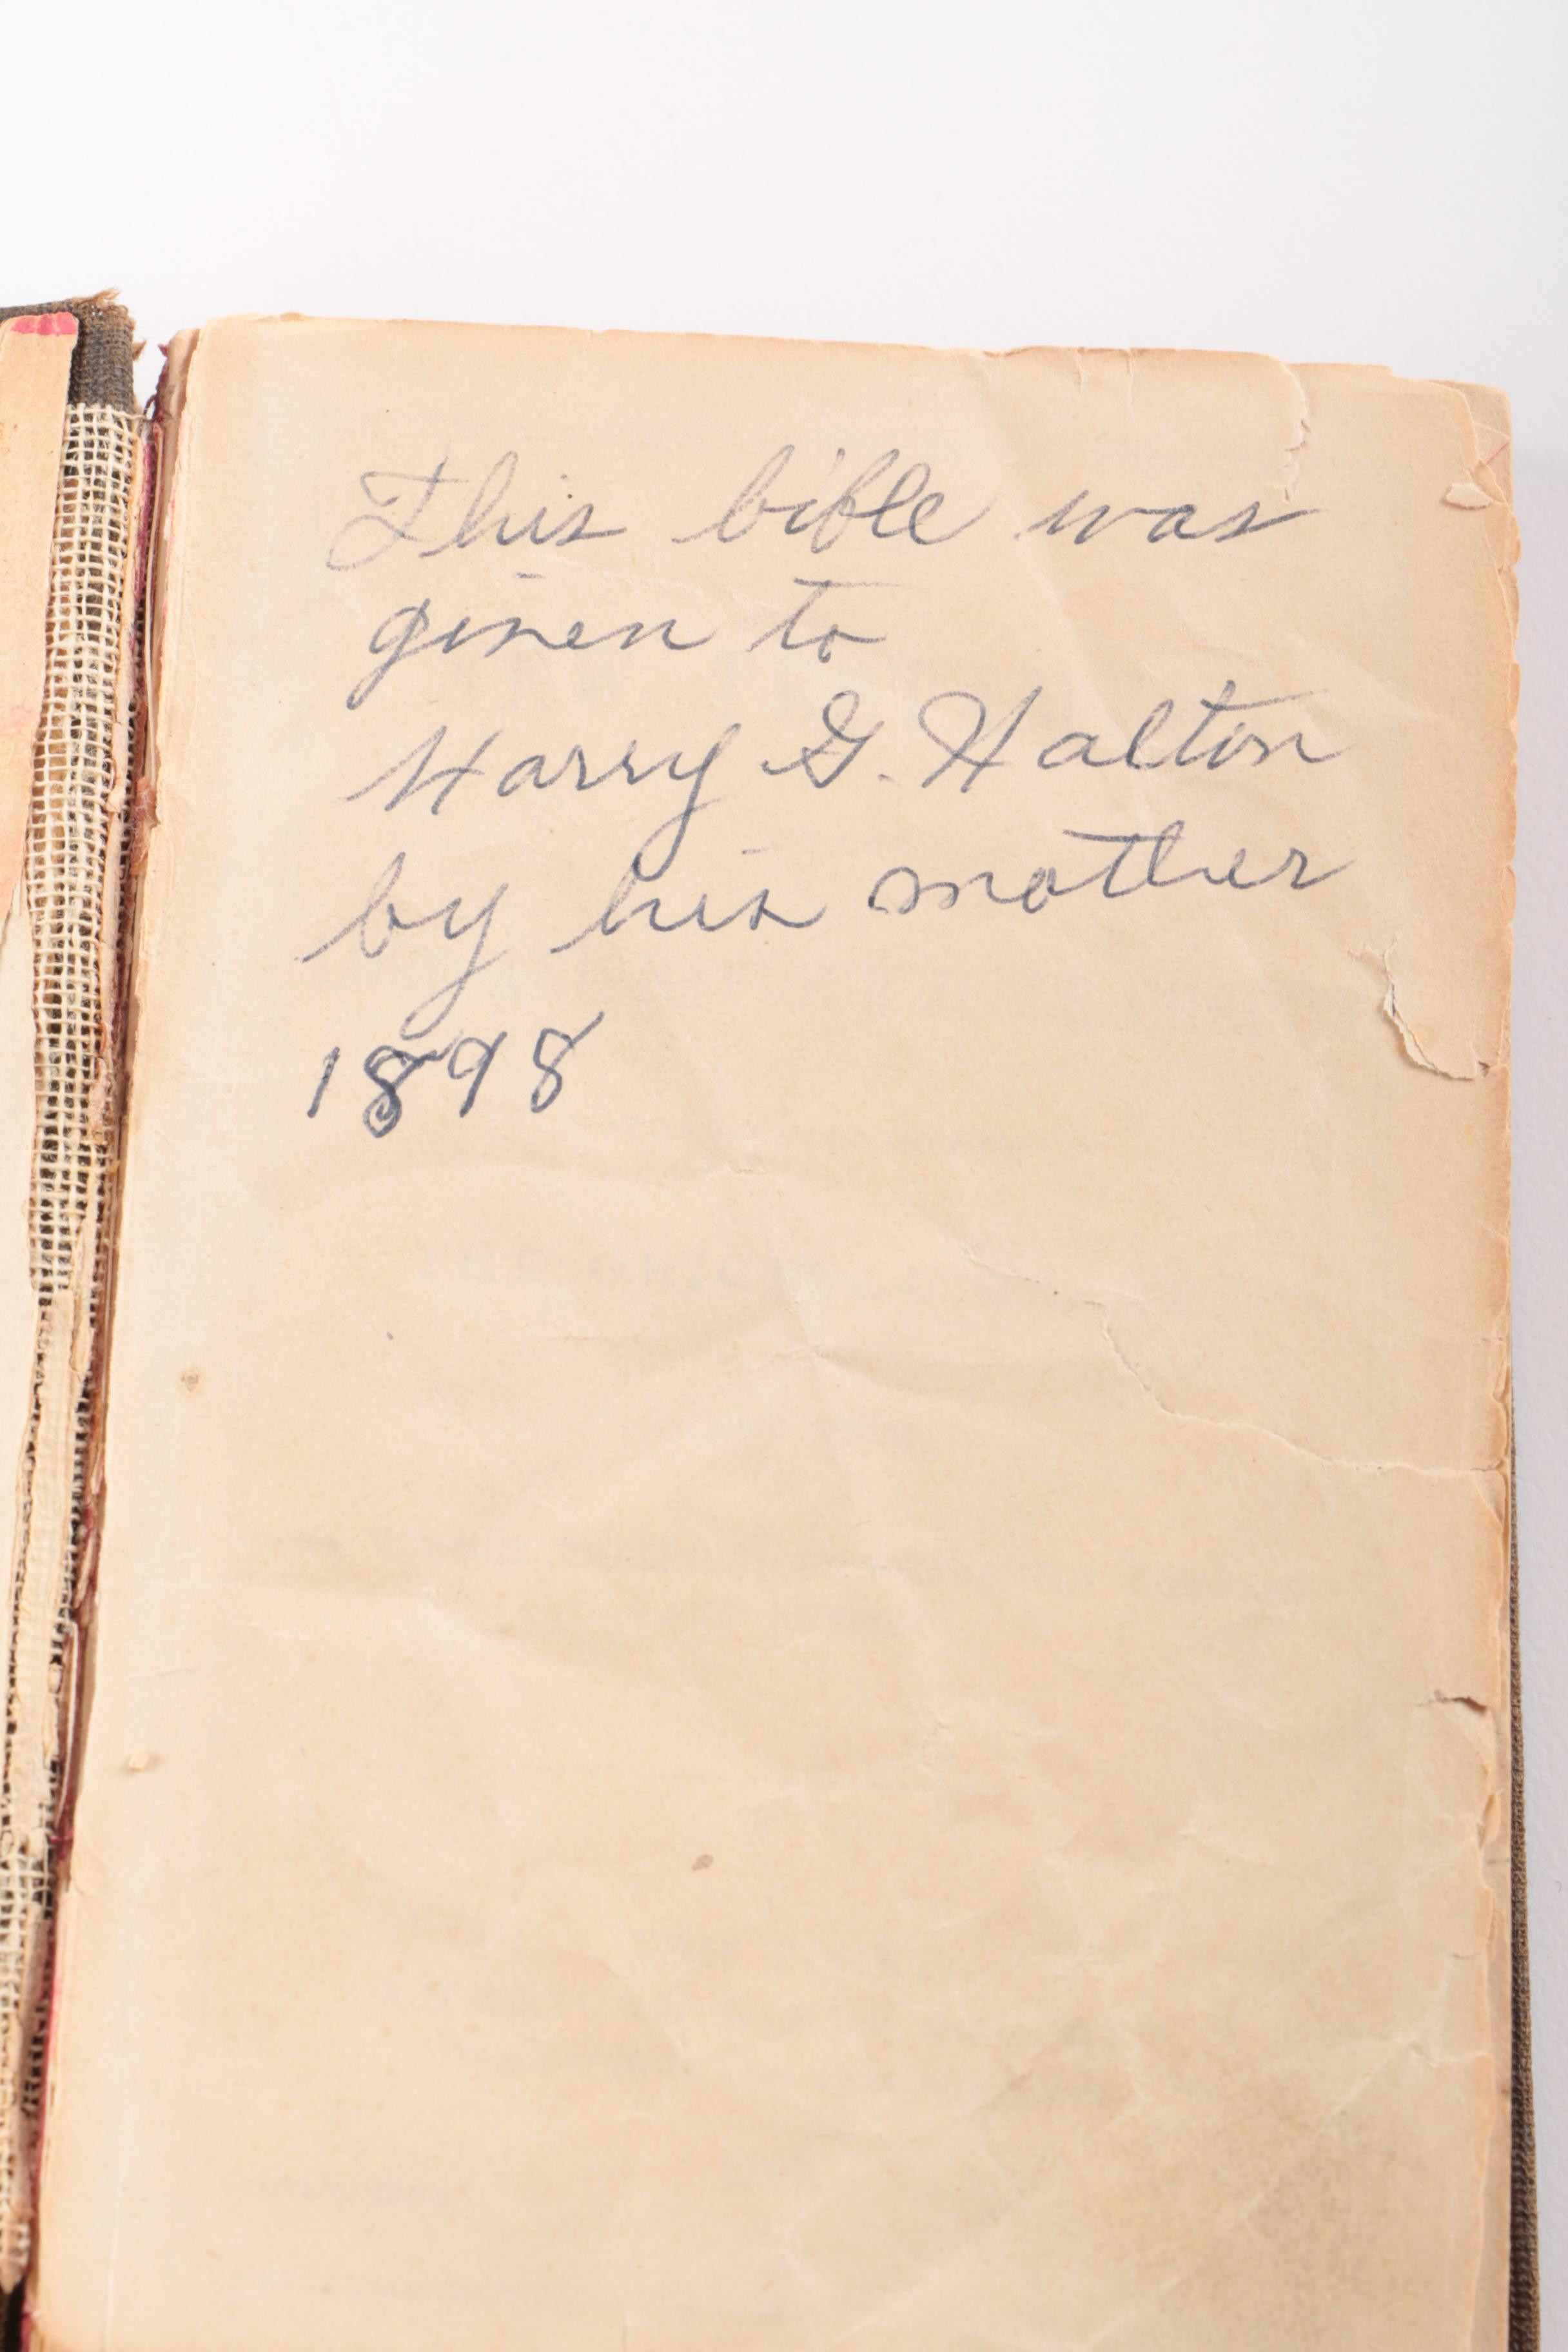 This bible was
given to
Harry G. Halton
by his mother
1898